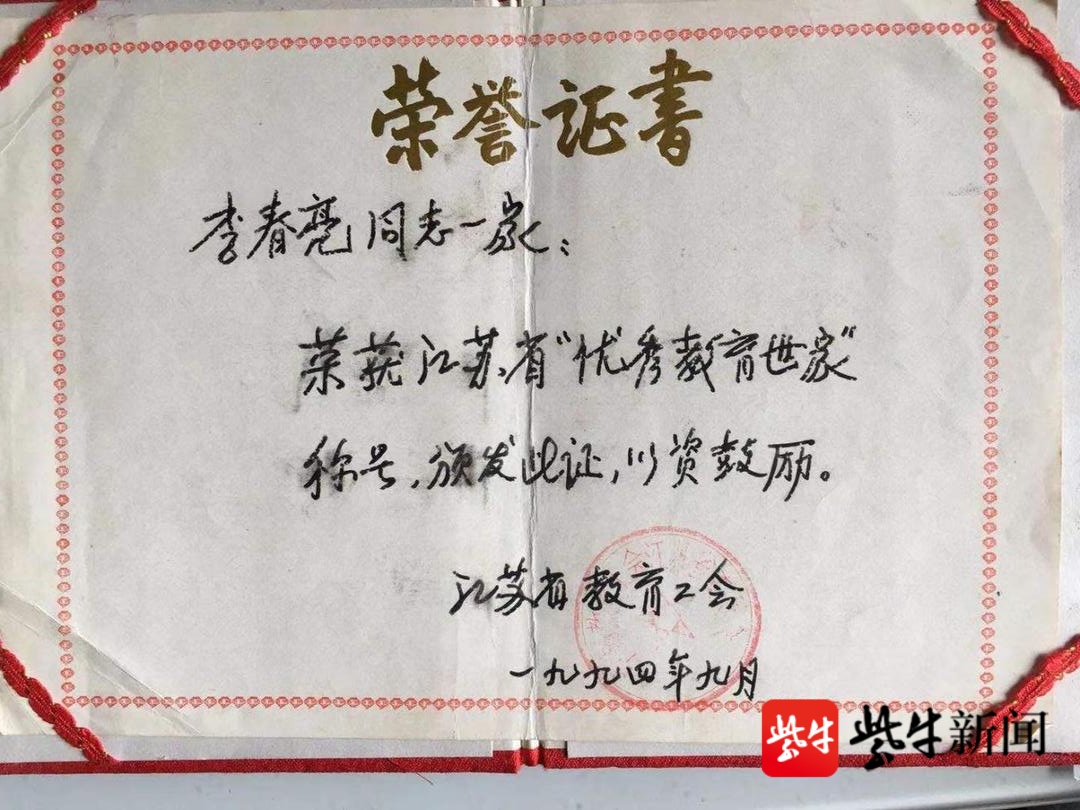 荣誉证书
李春亮同志一家：
荣获江苏省“优秀教育世家”
称号，颁发此证，以资鼓励。
江苏省教育工会
一九九四年九月
紫牛 紫牛新闻